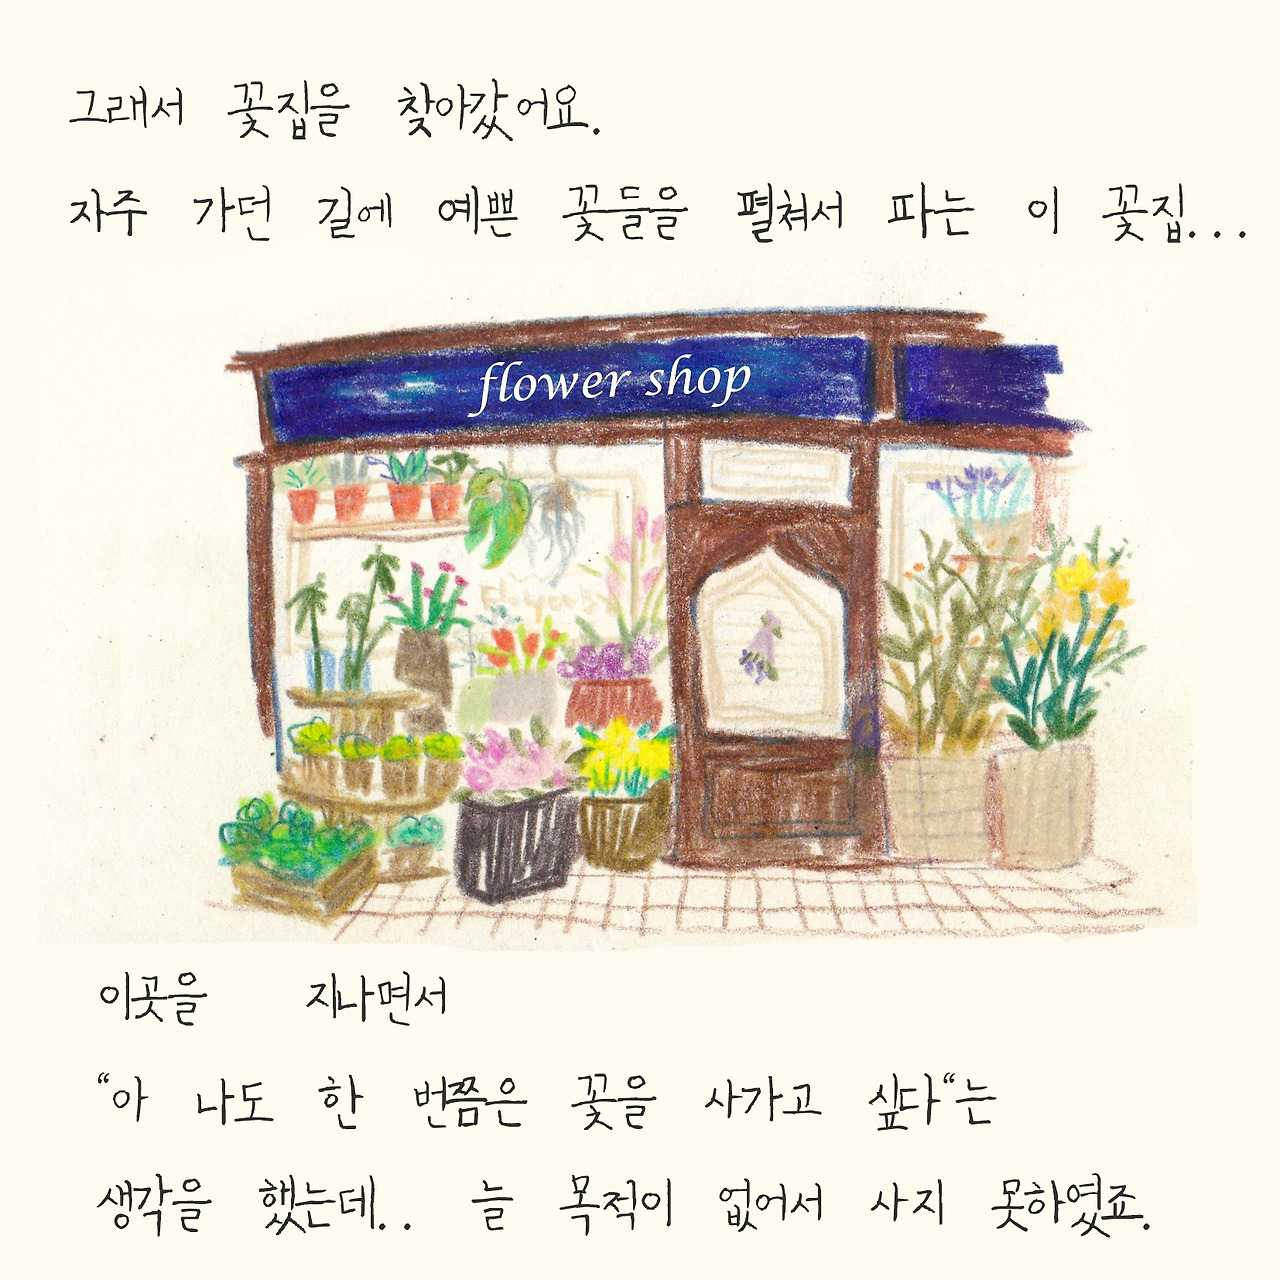 그래서 꽃집을 찾아갔어요.
자주 가던 길에 예쁜 꽃들을 펼쳐서 파는 이 꽃집...
flower shop
이곳을 지나면서
“아 나도 한 번쯤은 꽃을 사가고 싶다“는
생각을 했는데.. 늘 목적이 없어서 사지 못하였죠.